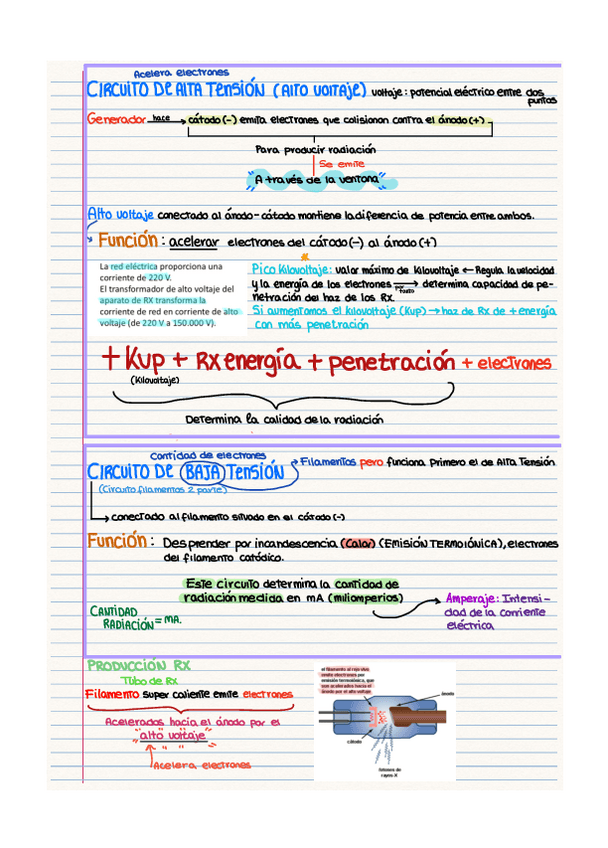 Acelera electrones
CIRCUITO DE ALTA TENSIÓN (Alto voltaje) voltaje: potencial eléctrico entre dos
puntos
Generador hace → cátodo (-) emita electrones que colisionan contra el ánodo (+).
Para producir radiación
Se emite
"A través de la ventana"
Alto voltaje conectado al ánodo-cátodo mantiene la diferencia de potencia entre ambos.
Función: acelerar electrones del cátodo (-) al ánodo (+)
La red eléctrica proporciona una
corriente de 220 V.
El transformador de alto voltaje del
aparato de RX transforma la
corriente de red en corriente de alto
voltaje (de 220 V a 150.000 V).
Pico Kilovoltaje: valor máximo de Kilovoltaje ← Regula la velocidad
y la energía de los electrones → determina capacidad de pe-
por tanto
netración del haz de los RX
Si aumentamos el Kilovoltaje (Kup) → haz de RX de + energía
con más penetración
+ Kup + RX energía + penetración + electrones
(Kilovoltaje)
Determina la calidad de la radiación
Cantidad de electrones
CIRCUITO DE BAJA TENSIÓN → Filamentos pero funciona primero el de Alta Tensión
(Circuito filamentos 2 parte)
→ conectado al filamento situado en el cátodo (-)
Función: Desprender por incandescencia (Calor) (EMISIÓN TERMOIÓNICA), electrones
del filamento catódico.
Este circuito determina la cantidad de
radiación medida en mA (miliamperios)
Amperaje: Intensi-
dad de la corriente
eléctrica
CANTIDAD
RADIACIÓN = MA.
PRODUCCIÓN RX
Tubo de RX
Filamento super caliente emite electrones
Acelerados hacia el ánodo por el
"alto voltaje"
Acelera electrones
el filamento al rojo vivo
emite electrones por
emisión termoiónica, que
son acelerados hacia el
ánodo por el alto voltaje
ánodo
cátodo
fotones de
rayos X